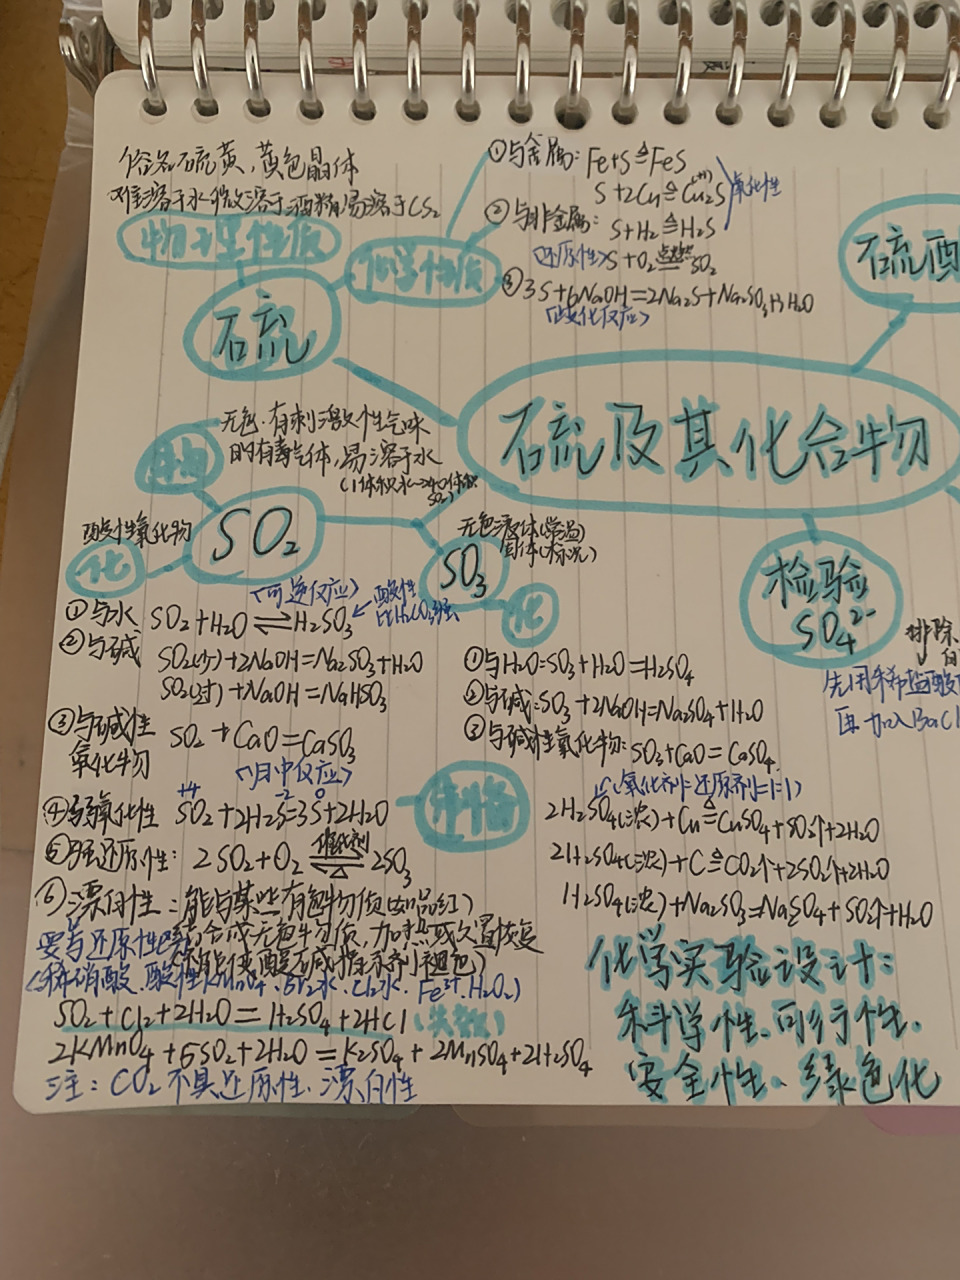 俗名硫黄,黄色晶体
难溶于水微溶于酒精,易溶于CS₂
物理性质
化学性质
①与金属: Fe+S≜FeS
S+2Cu≜Cu₂S
(+1)
氧化性
②与非金属: S+H₂≜H₂S
(还原性) S+O₂ 点燃= SO₂
③3S+6NaOH=2Na₂S+Na₂SO₃+3H₂O
(歧化反应)
硫
硫及其化合物
无色.有刺激性气味
的有毒气体,易溶于水
(1体积水→40体积
SO₂)
酸性氧化物
化
SO₂
无色液体(常温)
固体(标况)
SO₃
化
检验
SO₄²⁻
排除
先用稀盐酸
再加入BaCl
①与水 SO₂+H₂O⇌H₂SO₃
(可逆反应)
酸性
比H₂CO₃强
②与碱 SO₂(少)+2NaOH=Na₂SO₃+H₂O
SO₂(过)+NaOH=NaHSO₃
③与碱性
氧化物 SO₂+CaO=CaSO₃
(归中反应)
+4 -2 0
④弱氧化性 SO₂+2H₂S=3S+2H₂O
⑤强还原性: 2SO₂+O₂ 催化剂⇌△ 2SO₃
⑥漂白性:能与某些有色物质(如品红)
结合成无色物质,加热或久置恢复
(不能使酸碱指示剂褪色)
要与还原性
(稀硝酸.酸性KMnO₄.Br₂水.Cl₂水.Fe³⁺.H₂O₂)
SO₂+Cl₂+2H₂O=H₂SO₄+2HCl (失效)
2KMnO₄+5SO₂+2H₂O=K₂SO₄+2MnSO₄+2H₂SO₄
注:CO₂不具还原性、漂白性
①与H₂O:SO₃+H₂O=H₂SO₄
②与碱:SO₃+2NaOH=Na₂SO₄+H₂O
③与碱性氧化物:SO₃+CaO=CaSO₄
制备
(氧化剂:还原剂=1:1)
2H₂SO₄(浓)+Cu≜CuSO₄+SO₂↑+2H₂O
2H₂SO₄(浓)+C≜CO₂↑+2SO₂↑+2H₂O
H₂SO₄(浓)+Na₂SO₃=Na₂SO₄+SO₂↑+H₂O
化学实验设计:
科学性、可行性、
安全性、绿色化